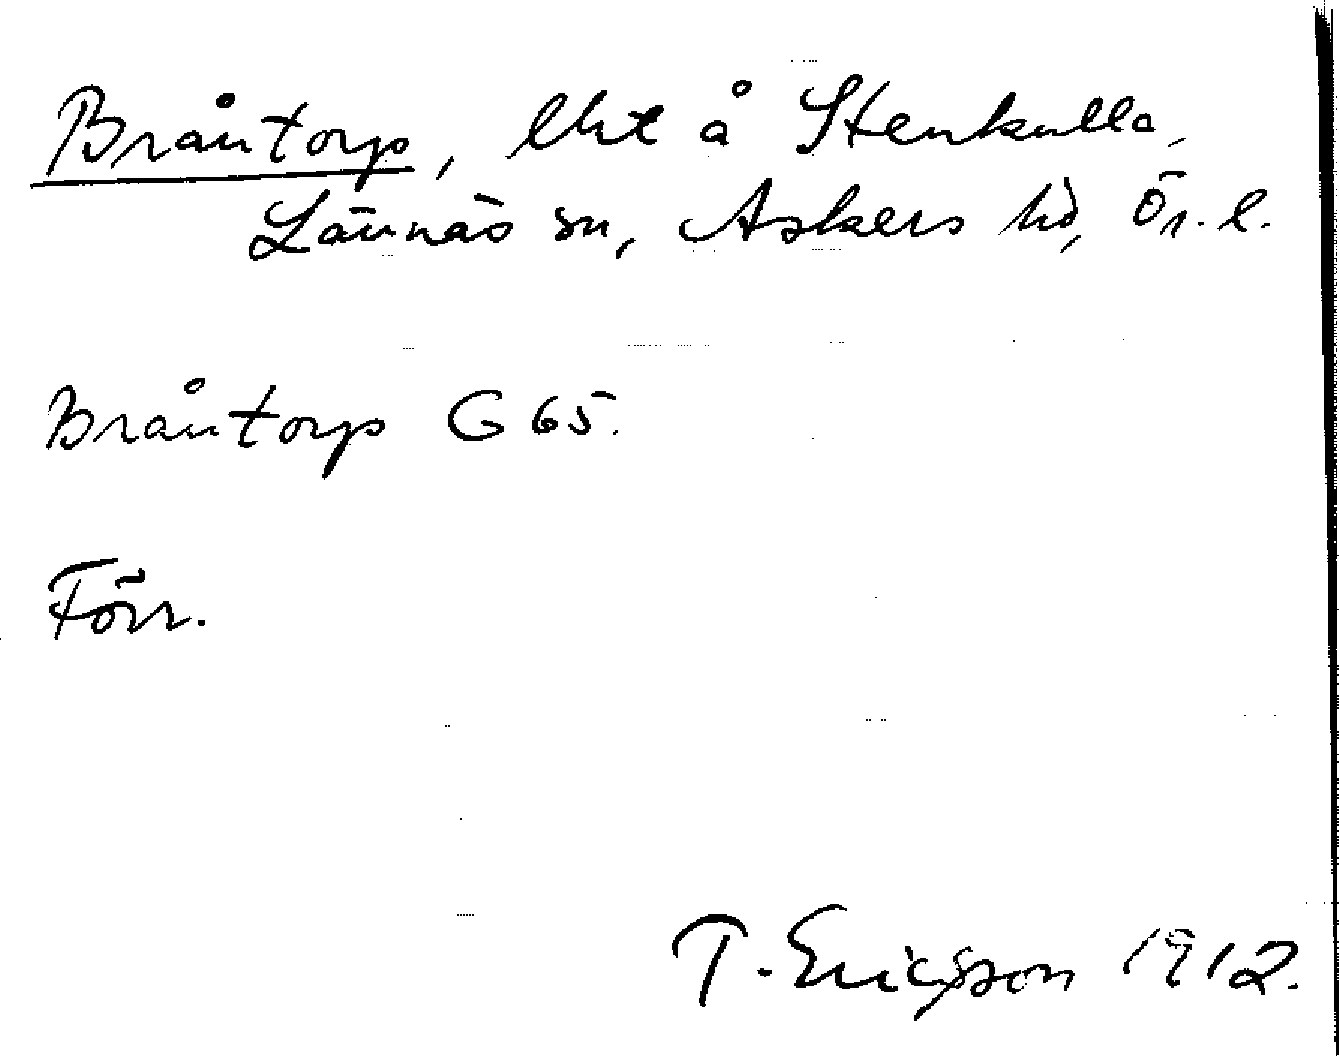 Bråntorp, lht å Stenkulla,
Lännäs sn, Askers hd, Ör. l.
Bråntorp G 65.
Förr.
T. Ericsson 1912.